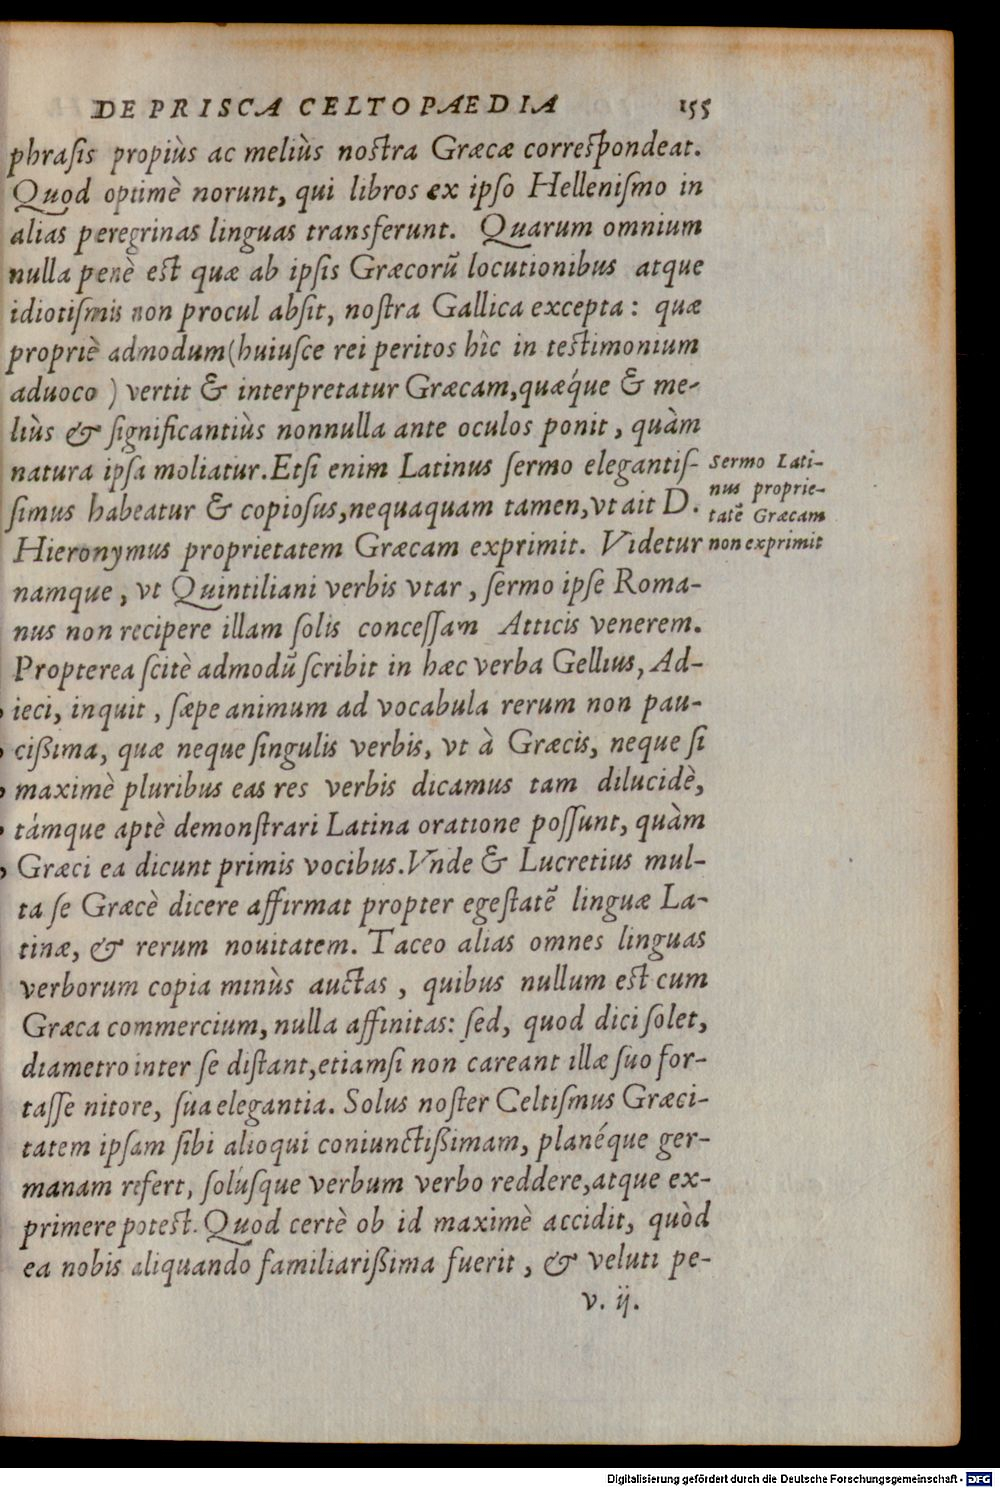 DE PRISCA CELTOPAEDIA 155
phraſis propiùs ac meliùs noſtra Græcæ correſpondeat.
Quod optimè norunt, qui libros ex ipſo Helleniſmo in
alias peregrinas linguas transferunt. Quarum omnium
nulla penè eſt quæ ab ipſis Græcorũ locutionibus atque
idiotiſmis non procul abſit, noſtra Gallica excepta: quæ
propriè admodum (huiuſce rei peritos hîc in teſtimonium
aduoco) vertit & interpretatur Græcam, quǽque & me-
liùs & ſignificantiùs nonnulla ante oculos ponit, quàm
natura ipſa moliatur. Etſi enim Latinus ſermo elegantiſ-
ſimus habeatur & copioſus, nequaquam tamen, vt ait D.
Hieronymus proprietatem Græcam exprimit. Videtur
namque, vt Quintiliani verbis vtar, ſermo ipſe Roma-
nus non recipere illam ſolis conceſſam Atticis venerem.
Propterea ſcitè admodũ ſcribit in hæc verba Gellius, Ad-
ieci, inquit, ſæpe animum ad vocabula rerum non pau-
cißima, quæ neque ſingulis verbis, vt à Græcis, neque ſi
maximè pluribus eas res verbis dicamus tam dilucidè,
támque aptè demonſtrari Latina oratione poſſunt, quàm
Græci ea dicunt primis vocibus. Vnde & Lucretius mul-
ta ſe Græcè dicere affirmat propter egeſtatẽ linguæ La-
tinæ, & rerum nouitatem. Taceo alias omnes linguas
verborum copia minùs auctas, quibus nullum eſt cum
Græca commercium, nulla affinitas: ſed, quod dici ſolet,
diametro inter ſe diſtant, etiamſi non careant illæ ſuo for-
taſſe nitore, ſua elegantia. Solus noſter Celtiſmus Græci-
tatem ipſam ſibi alioqui coniunctißimam, planéque ger-
manam refert, ſolúſque verbum verbo reddere, atque ex-
primere poteſt. Quod certè ob id maximè accidit, quòd
ea nobis aliquando familiarißima fuerit, & veluti pe-
v. ij.
Sermo Lati-
nus proprie-
tatẽ Græcam
non exprimit
Digitalisierung gefördert durch die Deutsche Forschungsgemeinschaft - DFG